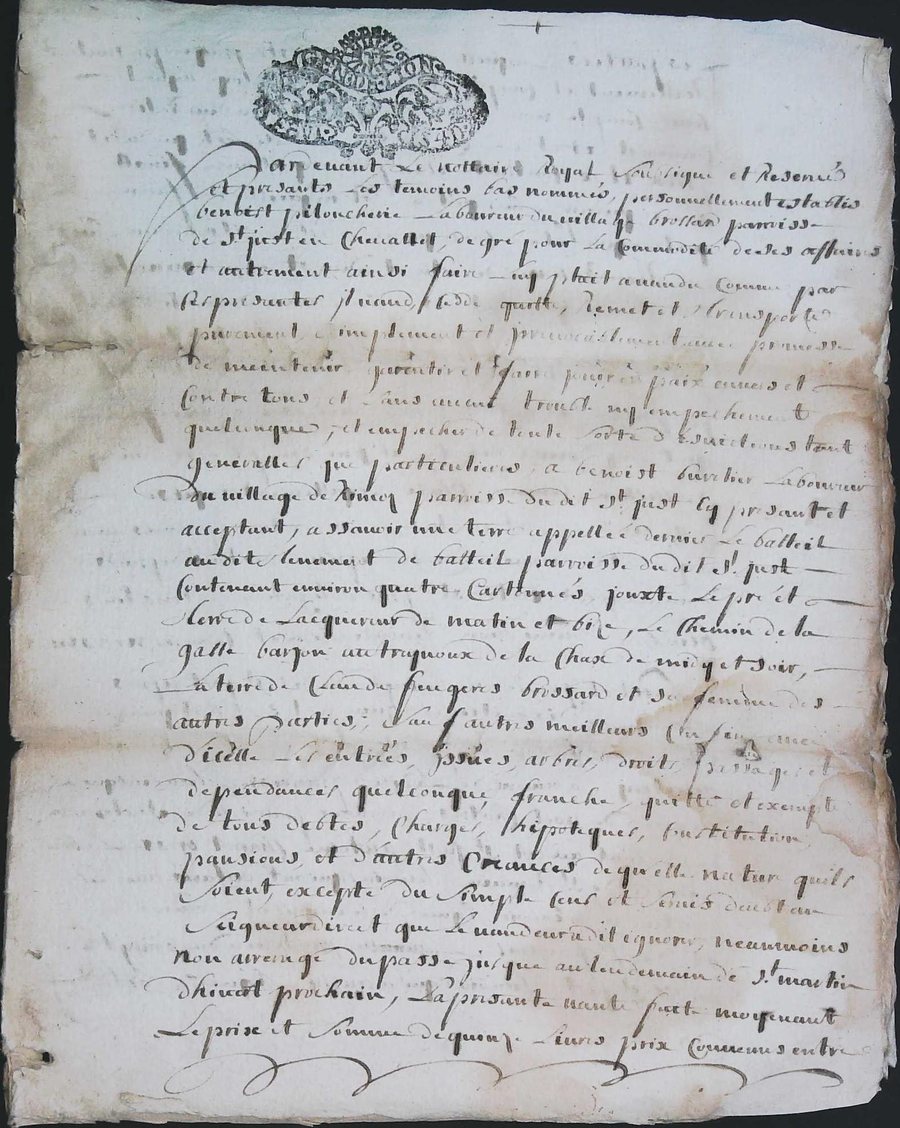 Pardevant Le nottaire Royal Soussigné et Reservé
et presants Les temoins bas nommés, personnellement estably
benoist piloucherie Laboureur du village brossard parroisse
de st just en Chevallet, de gré pour La Commodité de ses affaires
et autrement ainsi faire Luy plait a vandu Comme par
ses presantes il vand, cedde quitte, Remet et transporte
purement, simplement et irrevocablement avec promesse
de maintenir garentir et faire jouir en paix envers et
Contre tous, et sans aucun trouble ny empechement
quelconque, et empecher de toute sorte d'evictions tant
generalles que particulieres, a benoist Laboureur
du village de parroisse dudit st just Cy presant et
acceptant, assavoir une terre appellée dernier Le batteil
audit tenement de batteil parroisse dudit st just
Contenant environ quatre Cartonnés, jouxte Le pré et
terre de Lacquereur de matin et bize, Le Chemin de la
goutte barjon au de la Chax de midy et soir,
La terre de Claude feugeres brossard et sa femme des
autres parties, sauf autres meilleurs Confins
d'icelle Les entrées, issues, arbres, droits, passages et
dependances quelconque, franche, quitte et exempte
de tous debtes, Charges, hipoteques, substitution,
pansions, et d'autres Creances de quelle nature quils
soient, excepté du simple Cens et servis deubt au
seigneur direct que Le vandeur a dit ignorer, neanmoins
non arreragé du passé jusque au lendemain de st martin
d'hivert prochain, La presante vante faite moyenant
Le prix et somme de quinze Livres prix Convenus entre